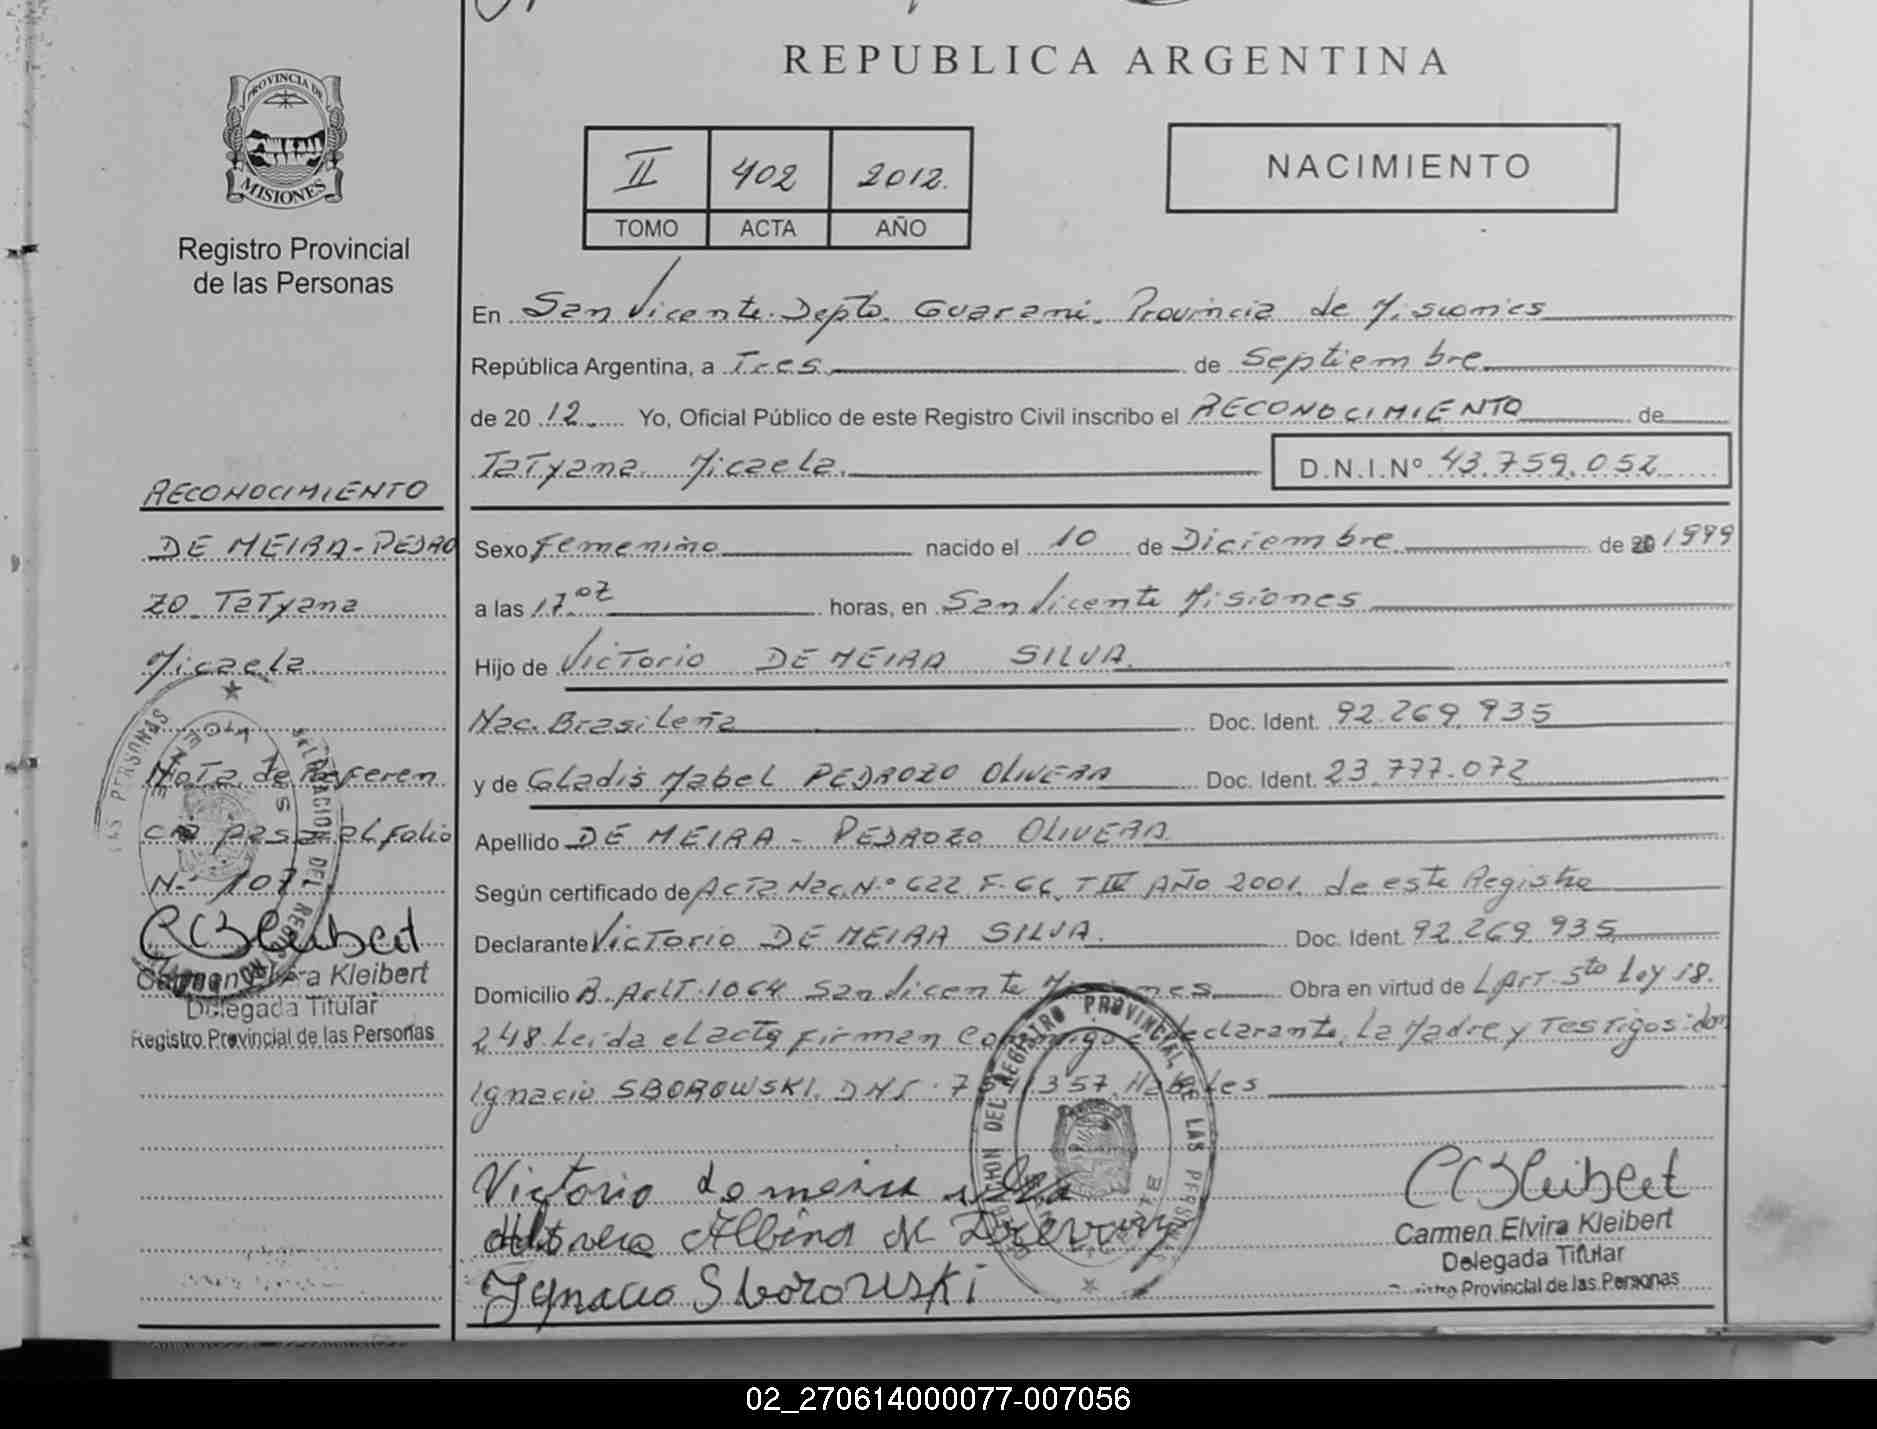 REPUBLICA ARGENTINA
PROVINCIA DE
MISIONES
Registro Provincial
de las Personas
II 402 2012.
TOMO ACTA AÑO
NACIMIENTO
En San Vicente. Depto. Guarani. Provincia de Misiones
República Argentina, a Tres de Septiembre
de 20 12 Yo, Oficial Público de este Registro Civil inscribo el RECONOCIMIENTO de
Tatyana Micaela. D.N.I.Nº 43.759.052
Sexo Femenino nacido el 10 de Diciembre de 20 1999
a las 17.07 horas, en San Vicente Misiones
Hijo de Victorio DE MEIRA SILVA.
Nac. Brasileña Doc. Ident. 92.269.935
y de Gladis Mabel PEDROZO OLIVERA Doc. Ident. 23.777.072
Apellido DE MEIRA - PEDROZO OLIVERA
Según certificado de Acta Nac. N.º 622 F. 66 T IV AÑO 2001. de este Registro
Declarante Victorio DE MEIRA SILVA. Doc. Ident. 92.269.935
Domicilio B. Arlt. 1064 San Vicente Misiones Obra en virtud de L. Art. 5to Ley 18.
248 Leida el acta firman conmigo declarante, La Madre y Testigos: don
Ignacio SBOROWSKI. DNI. 357. Habiles
Victorio de meira
Albina
Ignacio Sborowski
Carmen Elvira Kleibert
Delegada Titular
Registro Provincial de las Personas
RECONOCIMIENTO
DE MEIRA - PEDRO
ZO Tatyana
Micaela
Nota de Referen
cia pasa al folio
N.º 107
Carmen Elvira Kleibert
Delegada Titular
Registro Provincial de las Personas
DELEGACION DEL REGISTRO PROVINCIAL DE LAS PERSONAS
02_270614000077-007056